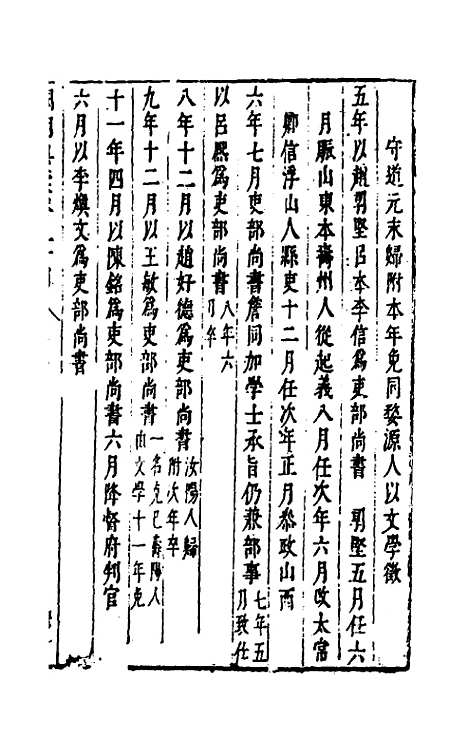 守道元末歸附本年免同婺源人以文學徵
五年以趙羾堅呂本李信爲吏部尚書 羾堅五月任六
月賑山東本壽州人從起義八月任次年六月改太常
卿信浮山人縣吏十二月任次年正月叅政山西
六年七月吏部尚書詹同加學士承旨仍兼部事七年五
月致仕
以呂熙爲吏部尚書八年六
月卒
八年十二月以趙好德爲吏部尚書汝陽人歸
附次年卒
九年十二月以王敏爲吏部尚書一名克巳壽陽人
由文學十一年免
十一年四月以陳銘爲吏部尚書六月降督府判官
六月以李煥文爲吏部尚書